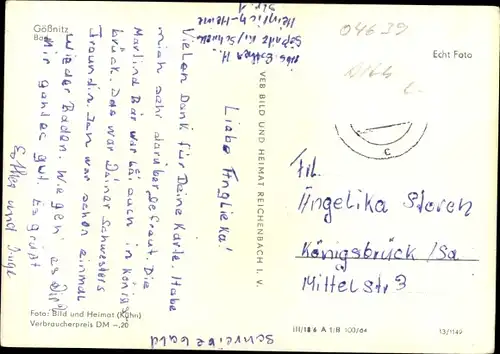 Gößnitz
Bad
Liebe Anglieka!
Vielen Dank für Deine Karte. Habe
mich sehr darüber gefraut. Die
Marlind Bär war bei auch in Königs
brück. Das war Deiner Schwesters
Freundin. Jan war schon einmal
wieder Baden. Wie geht es Dir?
Mir gantes gut. Es grüßt
Esther und
schreibe bald
Abs. Esther H.
Heinrich-Heine
Str. 1
Foto: Bild und Heimat (Kühn)
Verbraucherpreis DM -,20
VEB BILD UND HEIMAT REICHENBACH I. V.
04639
Echt Foto
Frl.
Angelika Storch
Königsbrück/Sa
Mittelstr 3
III/18/6 A 1/B 100/64
13/1149